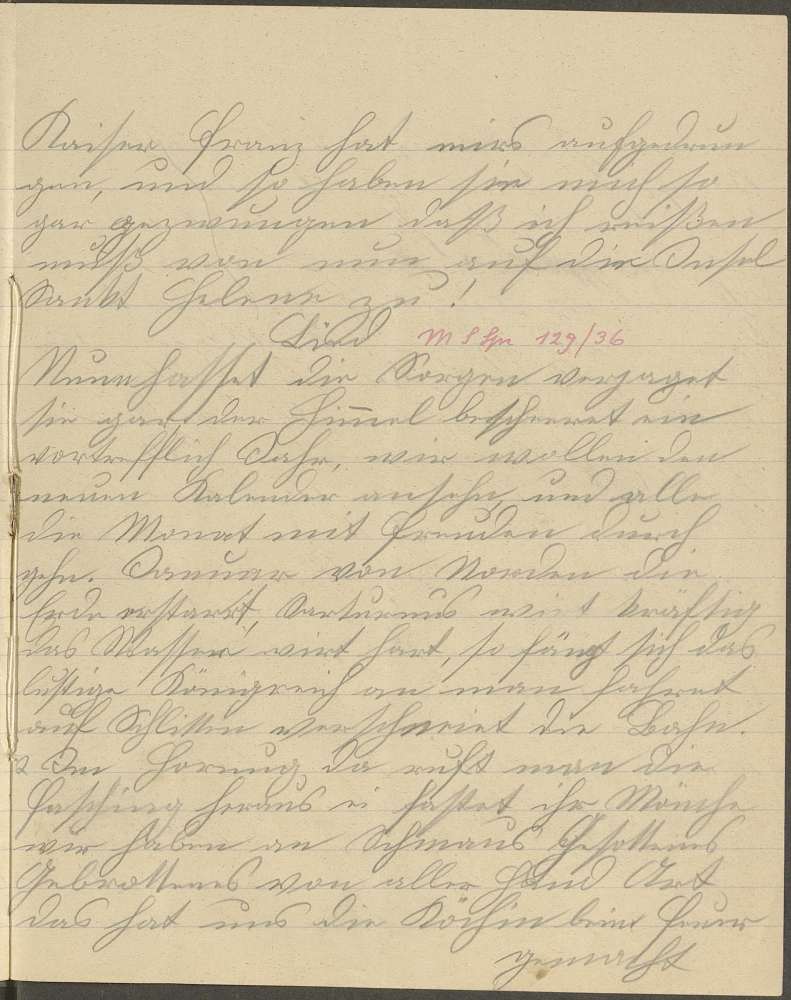 Kaiser Franz hat mirs aufgedrun
gen, und so haben sie mich so
gar gezwungen daß ich reißen
muß von nun auf die Insel
Sankt Helena zu!
Lied M S Hn 129/36
Nunn hasset die Sorgen verjaget
sie gar der Himmel bescheeret ein
vortrefflich Jahr, wir wollen den
neuen Kalender ansehn, und alle
die Monat mit Freuden durch
gehn. Januar von Norden die
Erde erstarrt, Sarturnus wirt kräftig
das Wasser wirt hart, so fängt sich das
lustige Königreich an man fahret
auf Schlitten verschneiet die Bahn.
2 Im Hornug da ruft man die
Fasching heraus ei fastet ihr Mönche
wir haben an Schmaus Gesottenes
Gebrottenes von aller Hand Art
das hat uns die Köchin beim Feuer
gemacht